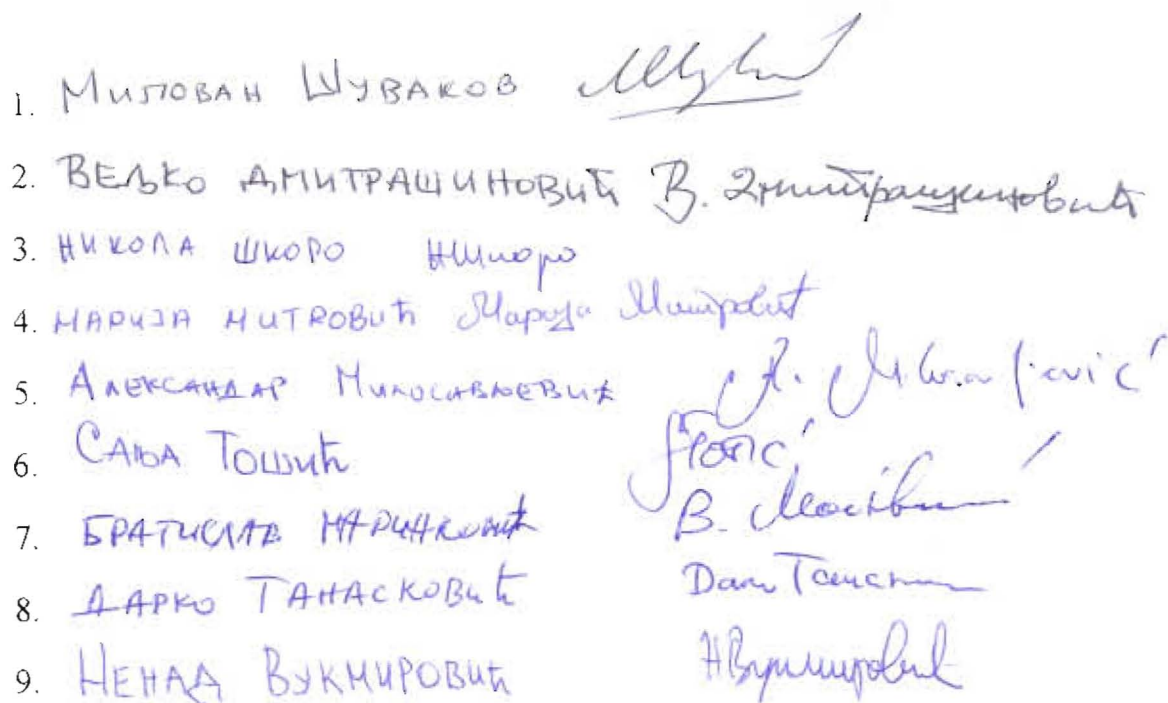 1. МИЛОВАН ШУВАКОВ
2. ВЕЉКО ДМИТРАШИНОВИЋ В. Дмитрашиновић
3. НИКОЛА ШКОРО НШкоро
4. МАРИЈА МИТРОВИЋ Марија Митровић
5. АЛЕКСАНДАР МИЛОСАВЉЕВИЋ A. Milosavljević
6. САЊА ТОШИЋ STošić
7. БРАТИСЛАВ МАРИНКОВИЋ B.
8. ДАРКО ТАНАСКОВИЋ
9. НЕНАД ВУКМИРОВИЋ НВукмировић